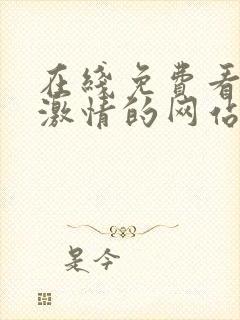 在綫免費看
激情的网站
是今